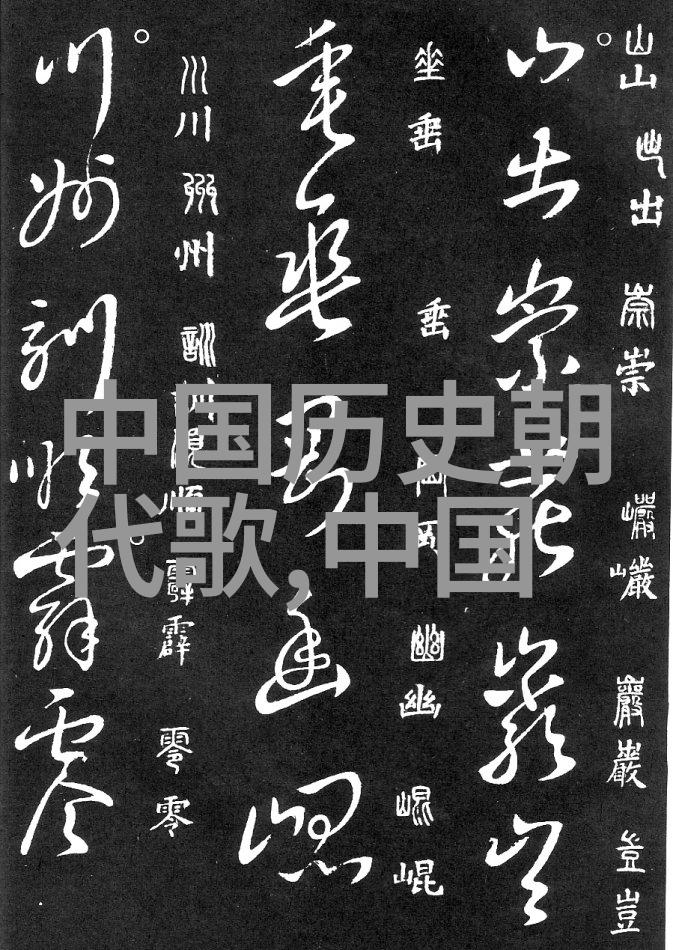 山山出出崇崇巗巗巖巖豈豈
山出崇巖巖豈
垂垂垂幽幽崐崐
垂垂岡幽崐
川川州州訓訓順順霹霹零零
川州訓順霹零
中国历史朝
代歌,中国